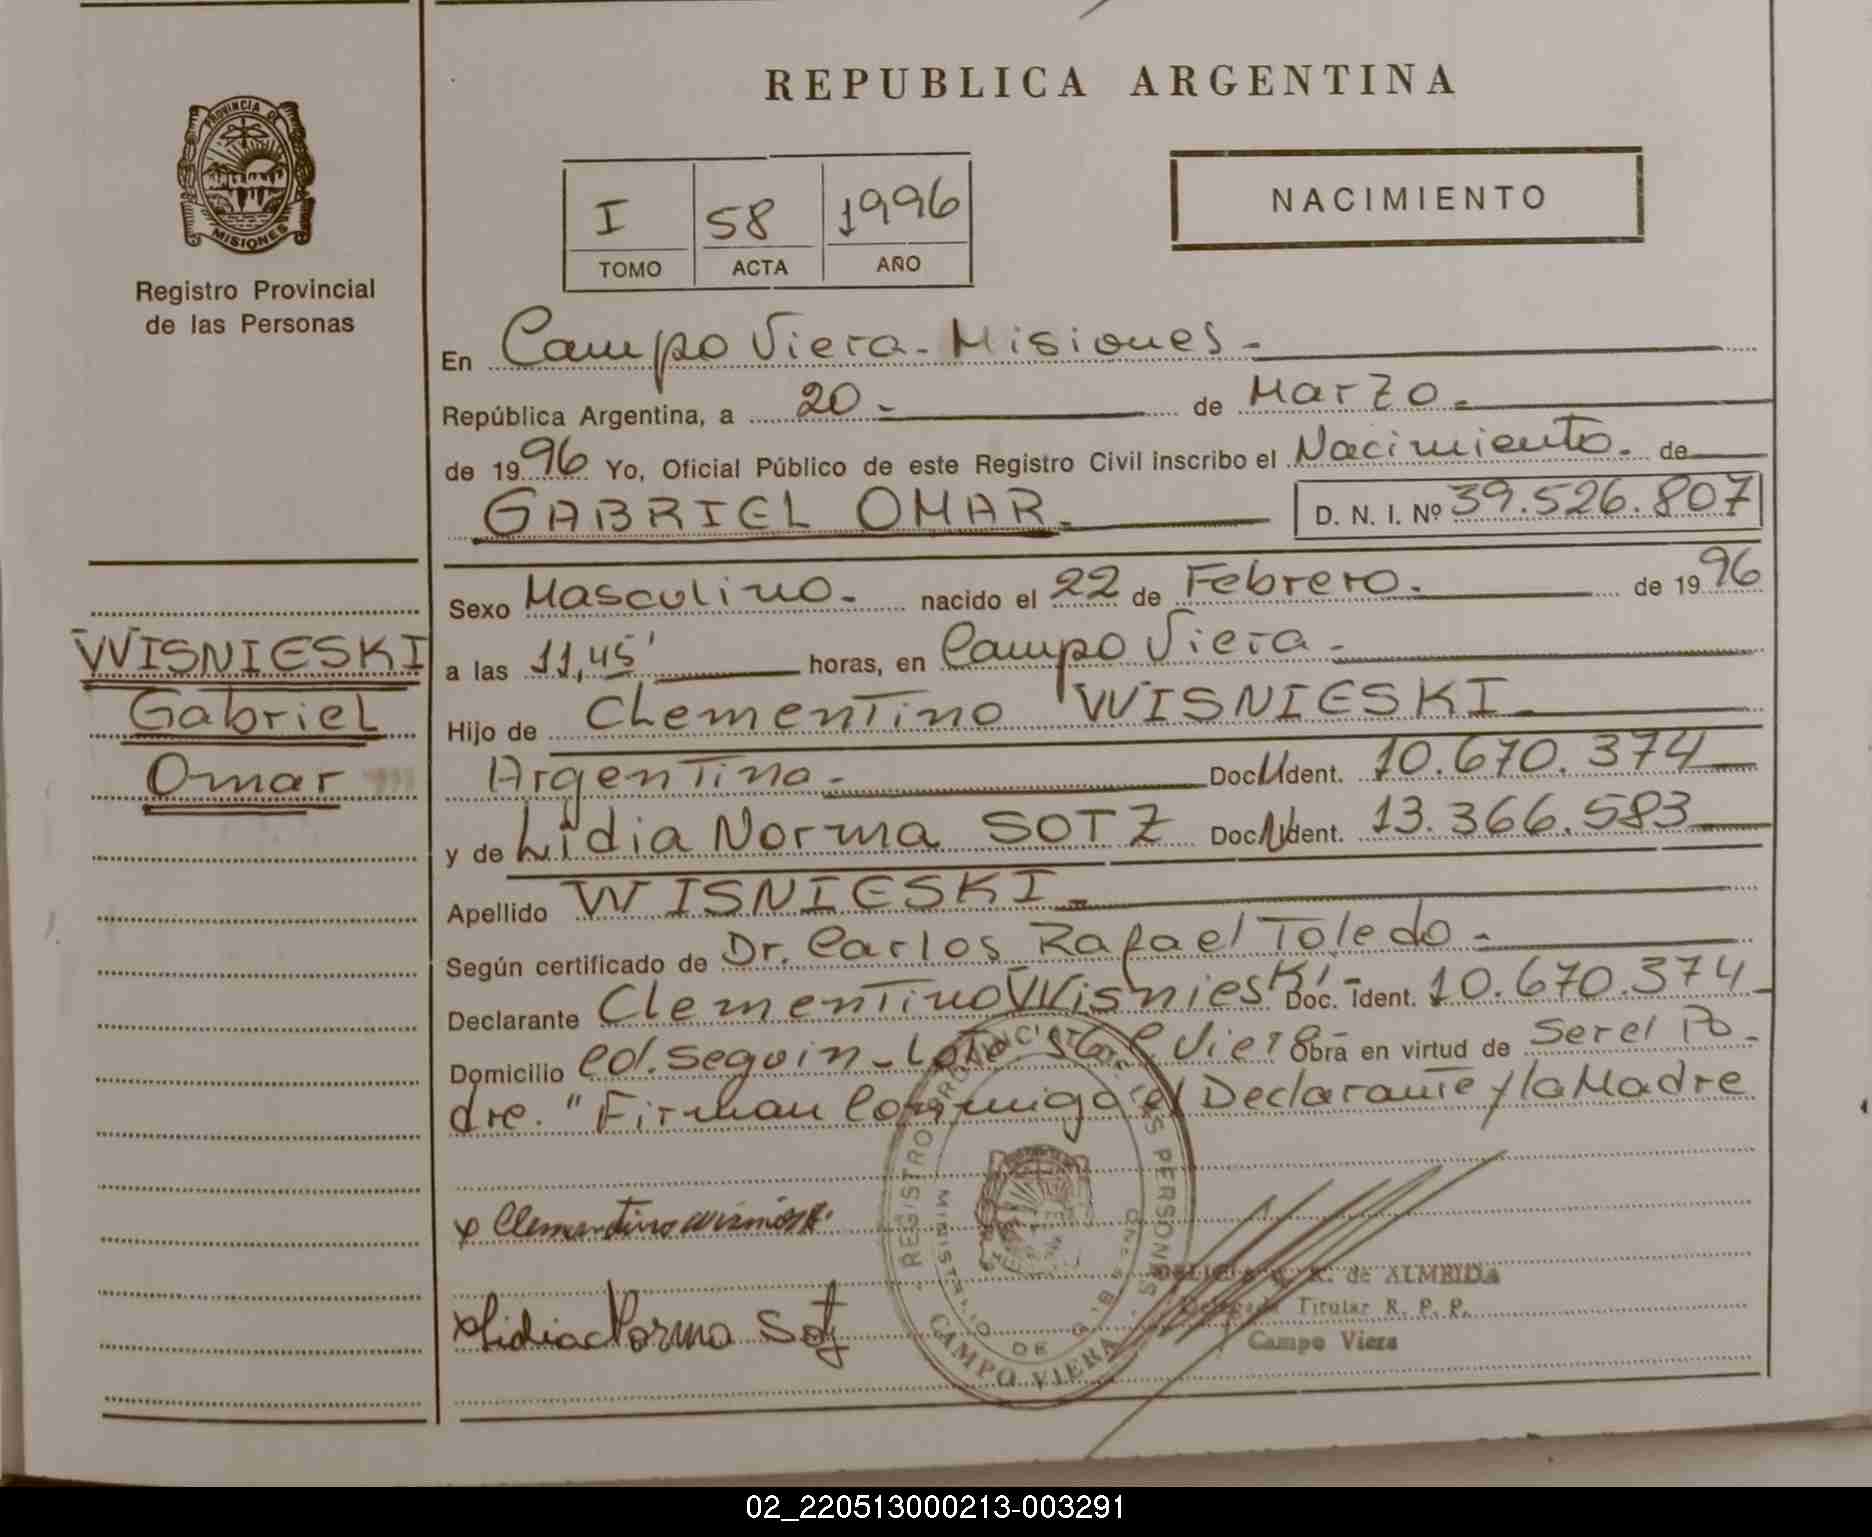 REPUBLICA ARGENTINA
PROVINCIA DE MISIONES
Registro Provincial
de las Personas
I 58 1996
TOMO ACTA AÑO
NACIMIENTO
En Campo Viera - Misiones -
República Argentina, a 20 - de Marzo -
de 1996 Yo, Oficial Público de este Registro Civil inscribo el Nacimiento - de
GABRIEL OMAR - D. N. I. Nº 39.526.807
Sexo Masculino - nacido el 22 de Febrero - de 1996
WISNIESKI
Gabriel
Omar
a las 11,45' horas, en Campo Viera -
Hijo de Clementino WISNIESKI -
Argentino - Doc. Ident. 10.670.374
y de Lidia Norma SOTZ Doc. Ident. 13.366.583
Apellido WISNIESKI -
Según certificado de Dr. Carlos Rafael Toledo -
Declarante Clementino Wisnieski - Doc. Ident. 10.670.374
Domicilio Cd. Seguin - Lote C. Viera Obra en virtud de Ser el Pa-
dre. "Firman Conmigo el Declarante y la Madre
x Clementino Wisnieski
x Lidia Norma Sotz
REGISTRO PROVINCIAL DE LAS PERSONAS
MINISTERIO DE
CAMPO VIERA
de ALMEIDA
Delegada Titular R. P. P.
Campo Viera
02_220513000213-003291